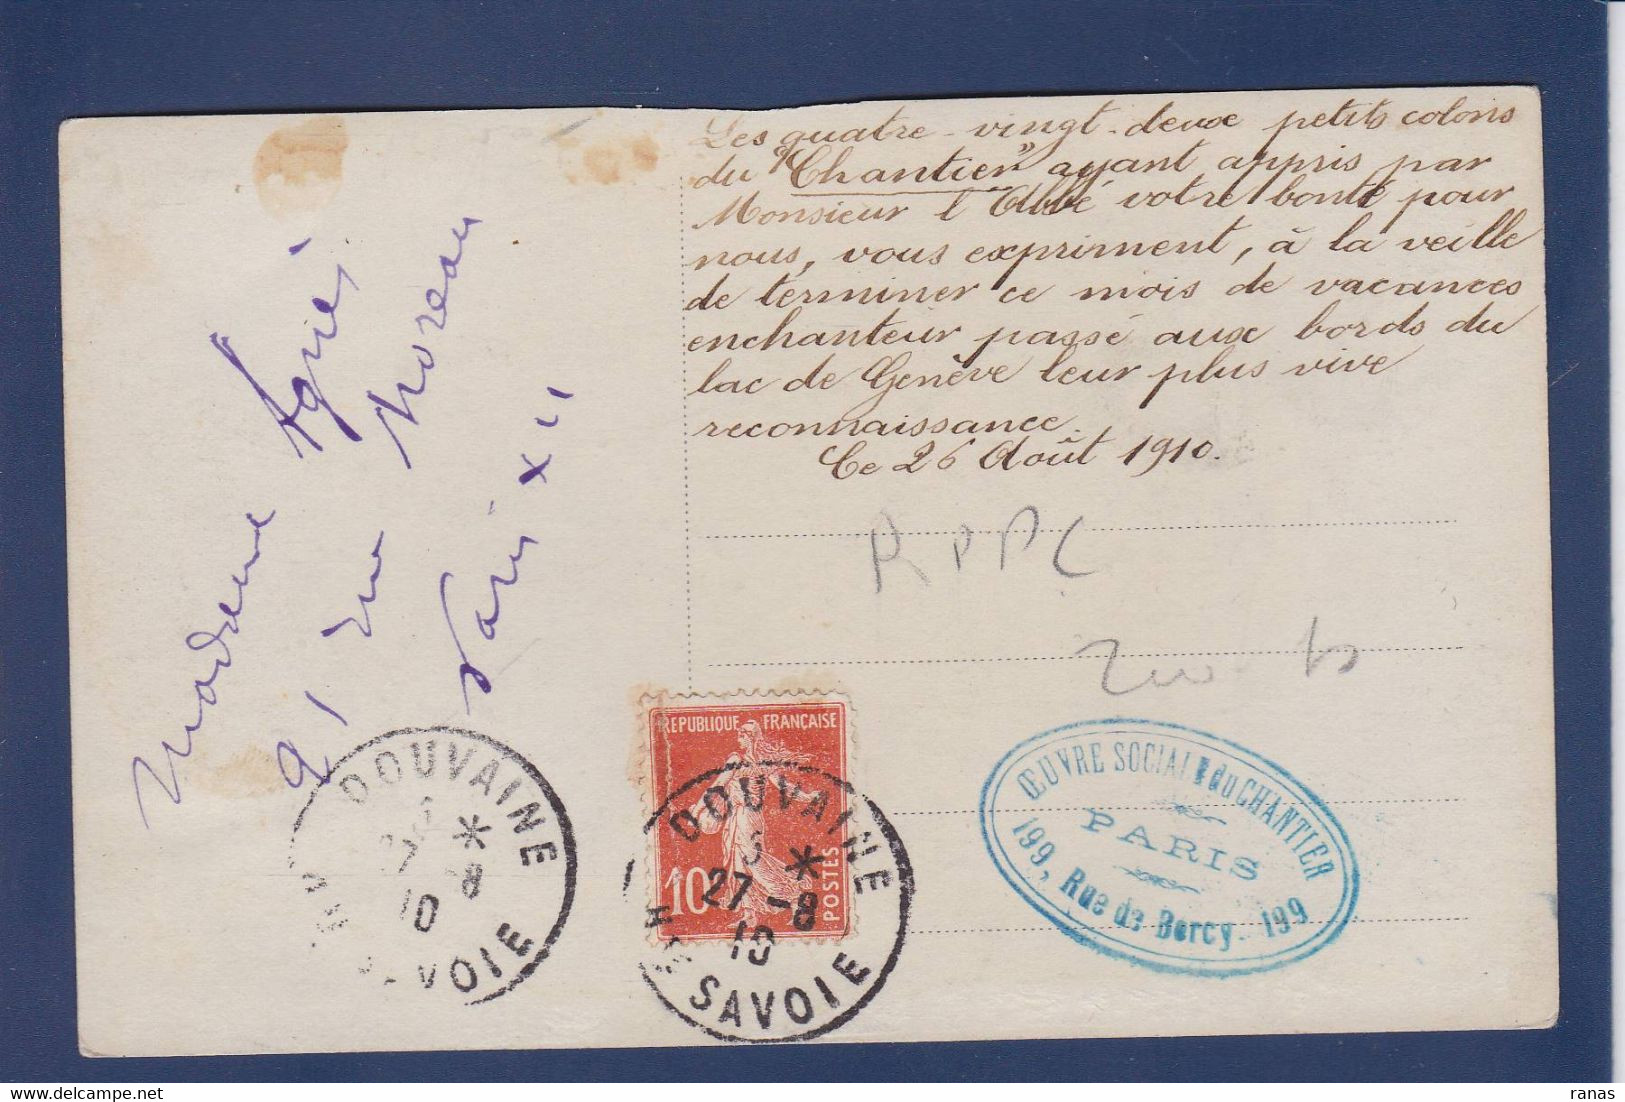 Les quatre-vingt-deux petits colons
du "Chantier" ayant appris par
Monsieur l'Abbé votre bonté pour
nous, vous expriment, à la veille
de terminer ce mois de vacances
enchanteur passé aux bords du
lac de Genève leur plus vive
reconnaissance.
Ce 26 Août 1910.
Madame Agnès
91 rue Moreau
Paris XII
RPPC
REPUBLIQUE FRANÇAISE
10
POSTES
DOUVAINE
27-8
10
HTE SAVOIE
DOUVAINE
27 8
10
SAVOIE
ŒUVRE SOCIALE du CHANTIER
PARIS
199, Rue de Bercy. 199
ranas